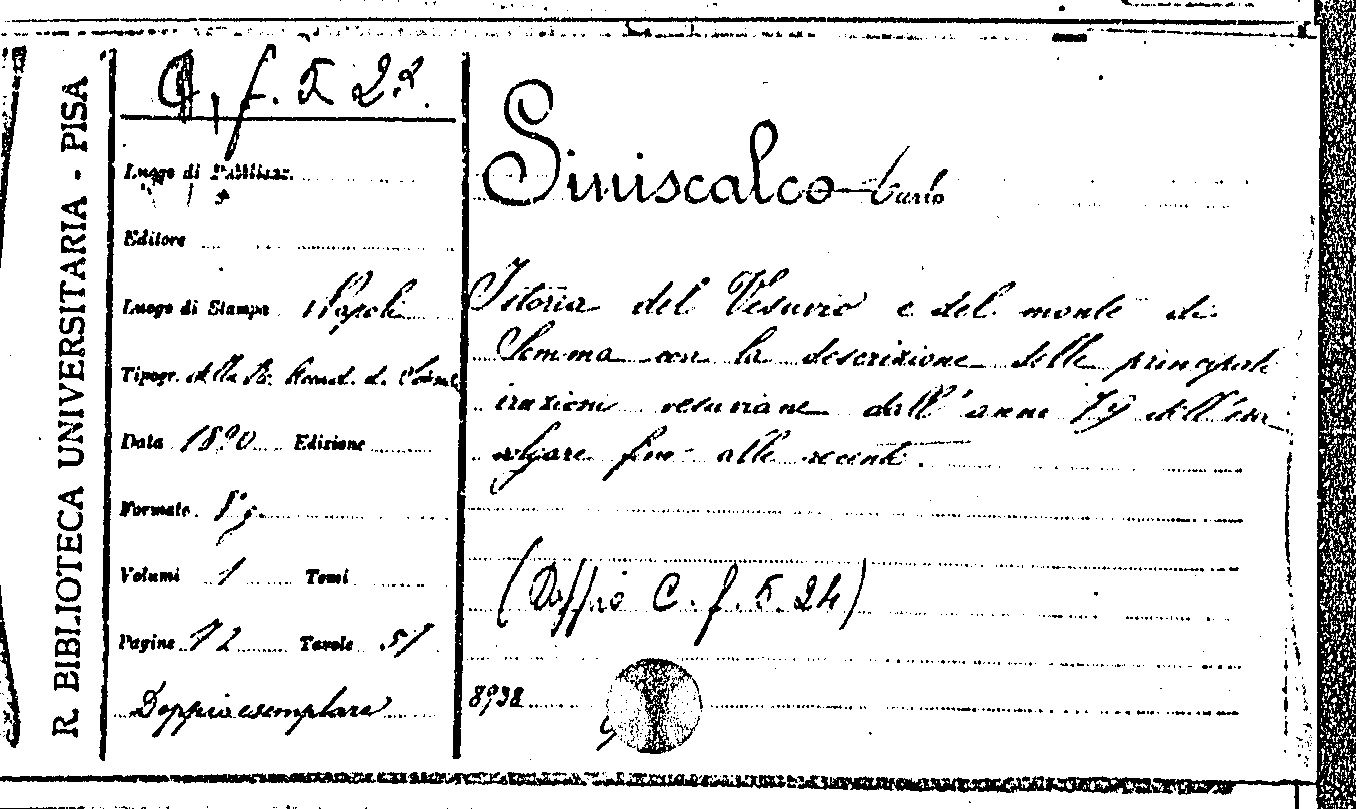 R. BIBLIOTECA UNIVERSITARIA - PISA
f. 5 23.
Luogo di Pubblicaz.
Editore
Luogo di Stampa Napoli
Tipogr. della R. Accad. d.
Data 1890 Edizione
Formato 8º
Volumi 1 Tomi
Pagine 72 Tavole
Doppio esemplare
Siniscalco Carlo
Istoria del Vesuvio e del monte di
Somma con la descrizione delle principali
eruzioni vesuviane dall'anno 79 dell'era
volgare fino alle recenti.
(Doppio C. f. 5. 24)
8938